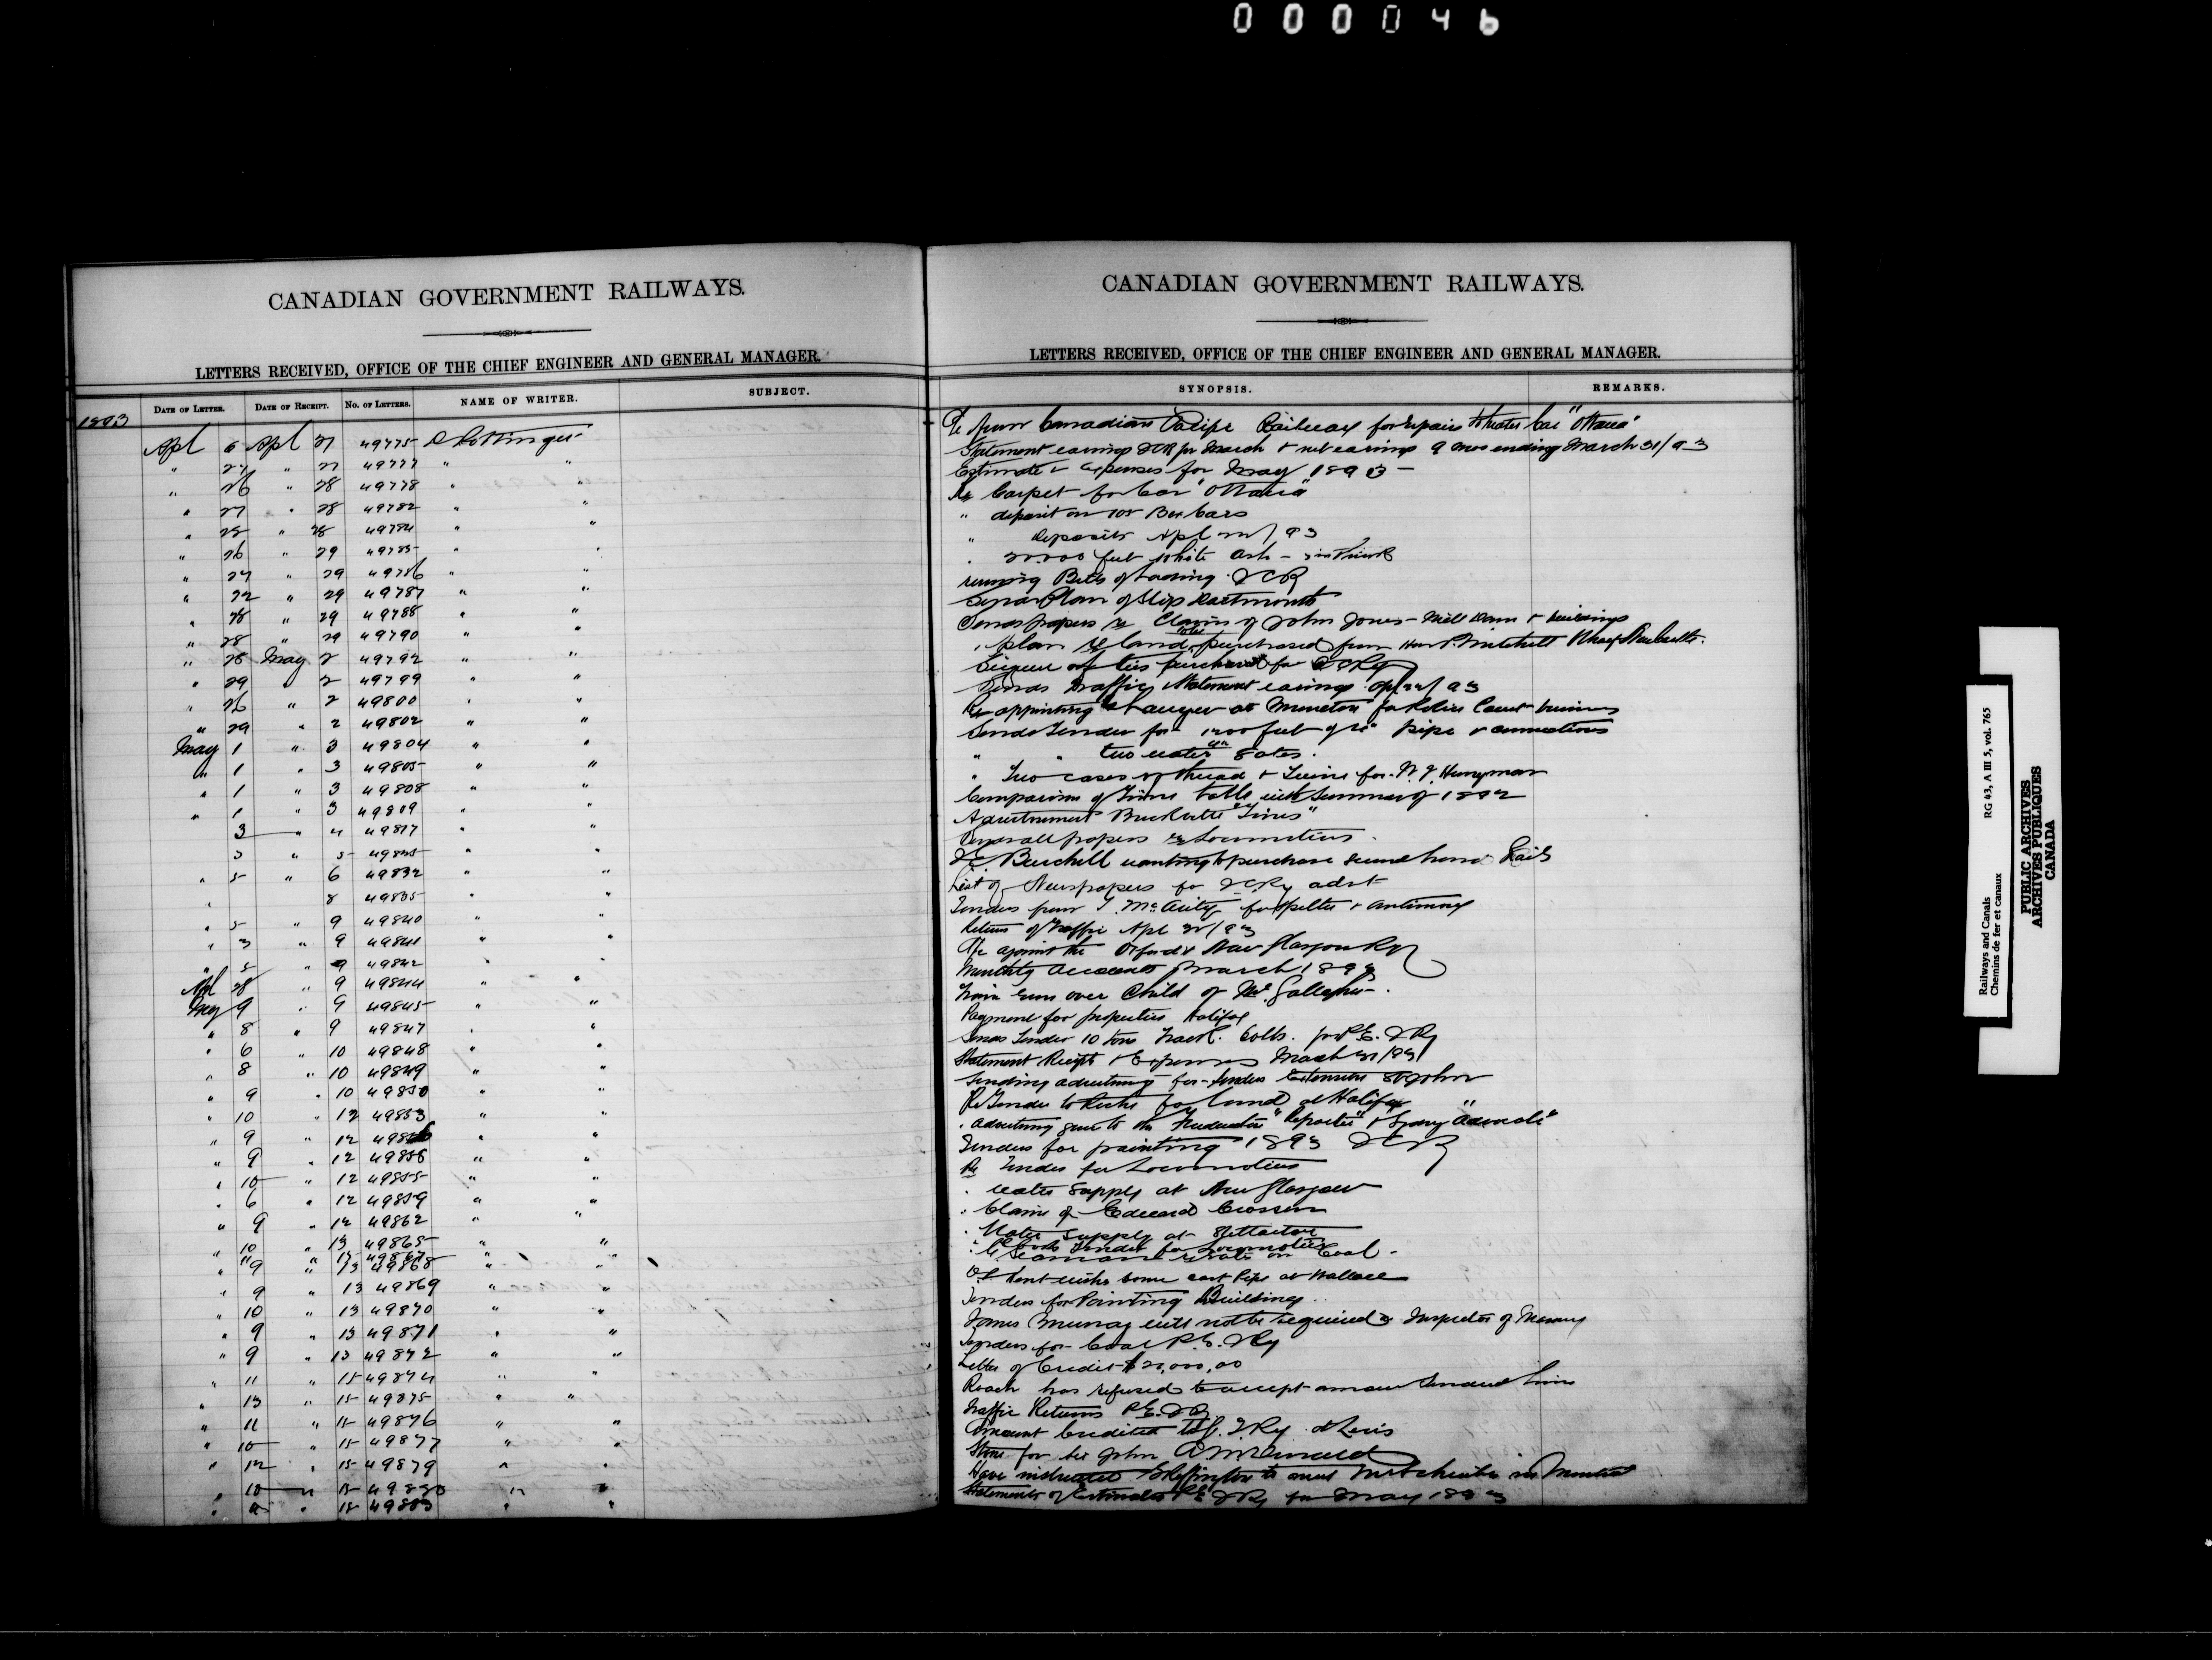 000046
CANADIAN GOVERNMENT RAILWAYS.
LETTERS RECEIVED, OFFICE OF THE CHIEF ENGINEER AND GENERAL MANAGER.
DATE OF LETTER. DATE OF RECEIPT. No. OF LETTERS. NAME OF WRITER. SUBJECT.
1893
Apl 6 Apl 27 49775 D Pottinger
" 27 " 27 49777 " "
" 26 " 28 49778 " "
" 27 " 28 49782 " "
" 25 " 28 49784 " "
" 26 " 29 49785 " "
" 27 " 29 49786 " "
" 22 " 29 49787 " "
" 28 " 29 49788 " "
" 28 " 29 49790 " "
" 28 May 2 49792 " "
" 29 " 2 49799 " "
" 26 " 2 49800 " "
" 29 " 2 49802 " "
May 1 " 3 49804 " "
" 1 " 3 49805 " "
" 1 " 3 49808 " "
" 1 " 3 49809 " "
3 " 4 49817 " "
3 " 5 " "
" 5 " 6 49832 " "
" 8 49835 " "
" 5 " 9 49840 " "
" 3 " 9 49841 " "
" 5 " 9 49842 " "
Apl 28 " 9 49844 " "
May 9 " 9 49845 " "
" 8 " 9 49847 " "
" 6 " 10 49848 " "
" 8 " 10 49849 " "
" 9 " 10 49850 " "
" 10 " 12 49853 " "
" 9 " 12 " "
" 9 " 12 49858 " "
" 10 " 12 49855 " "
" 6 " 12 49859 " "
" 9 " 12 49862 " "
" 10 13 49865 " "
" 11 " 15 49867 "
" 9 " 13 49868 " "
" 9 " 13 49869 " "
" 10 " 13 49870 " "
" 9 " 13 49871 " "
" 9 " 13 49872 " "
" 11 " 15 49874 " "
" 13 " 15 49875 " "
" 11 " 15 49876 " "
" 10 " 15 49877 " "
" 12 " 15 49879 " "
" 10 " 15 49880 " "
" " 15 49883 " "
CANADIAN GOVERNMENT RAILWAYS.
LETTERS RECEIVED, OFFICE OF THE CHIEF ENGINEER AND GENERAL MANAGER.
SYNOPSIS. REMARKS.
from Canadian Pacific Railway for repairs to Car "Ottawa"
Statement earnings ICR for March & net earnings 9 mos ending March 31/93
Estimate expenses for May 1893
Re Carpet for Car "Ottawa"
" deposit on Box Cars
" deposits Apl 22/93
feet White Ash
Bills of Lading ICR
Plan of Slip Dartmouth
Sends papers re Claim of John Jones - Mill Dam & buildings
" plan land purchased from Hon P. Mitchell Wharf Newcastle.
of ties purchased for ICRy
Sends Traffic Statement earnings Apl 22/93
Re appointing Lawyer at Moncton for Police Court business
Sends Tender for 1200 feet of pipe & connections
" " two water gates.
" Two cases of thread & Twine for
Comparison of Time Table with Summer of 1892
Advertisement Brockville "Times"
papers re Locomotives.
Burchill wanting to purchase second hand Rails
List of Newspapers for ICRy advt
Tenders from T. McAvity for Spelter & Antimony
Return of Traffic Apl 30/93
against the Oxford & New Glasgow Ry
Monthly accounts March 1893
Train run over Child of Mr. Gallagher.
Payment for properties Halifax
Sends Tender 10 tons Track bolts. for P.E.I.Ry
Statement Receipts & Expenses March 31/93
Sending advertising for Tenders Extension St John
Re Tender to for land at Halifax
" advertising sent to the Fredericton "Reporter" & Sydney "Advocate"
Tenders for painting 1893 ICR
Re Tender for Locomotives
" Water Supply at New Glasgow
" Claim of Edward Crossen
" Water Supply at Stellarton
" Tender for Locomotives
" Seaman rate on Coal.
wishes some cast Pipe at Wallace
Tenders for Painting Buildings.
James Murray will not be required as Inspector of Masonry
Tenders for Coal P.E.I.Ry
Letter of Credit $20,000.00
Roach has refused to accept amount tendered him
Traffic Returns P.E.I.Ry
Amount Credited Ry at Levis
Stone for Sir John A McDonald
Have instructed Skeffington to meet Mr Schreiber in Montreal
Statements of Estimates P.E.I.Ry for May 1893
Railways and Canals RG 43, A III 5, vol. 765
Chemins de fer et canaux
PUBLIC ARCHIVES
ARCHIVES PUBLIQUES
CANADA